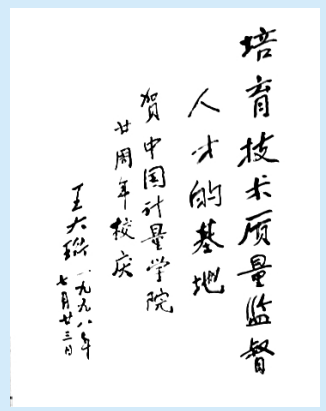 培育技术质量监督
人才的基地
贺中国计量学院
廿周年校庆
王大珩
一九九八年
七月廿三日